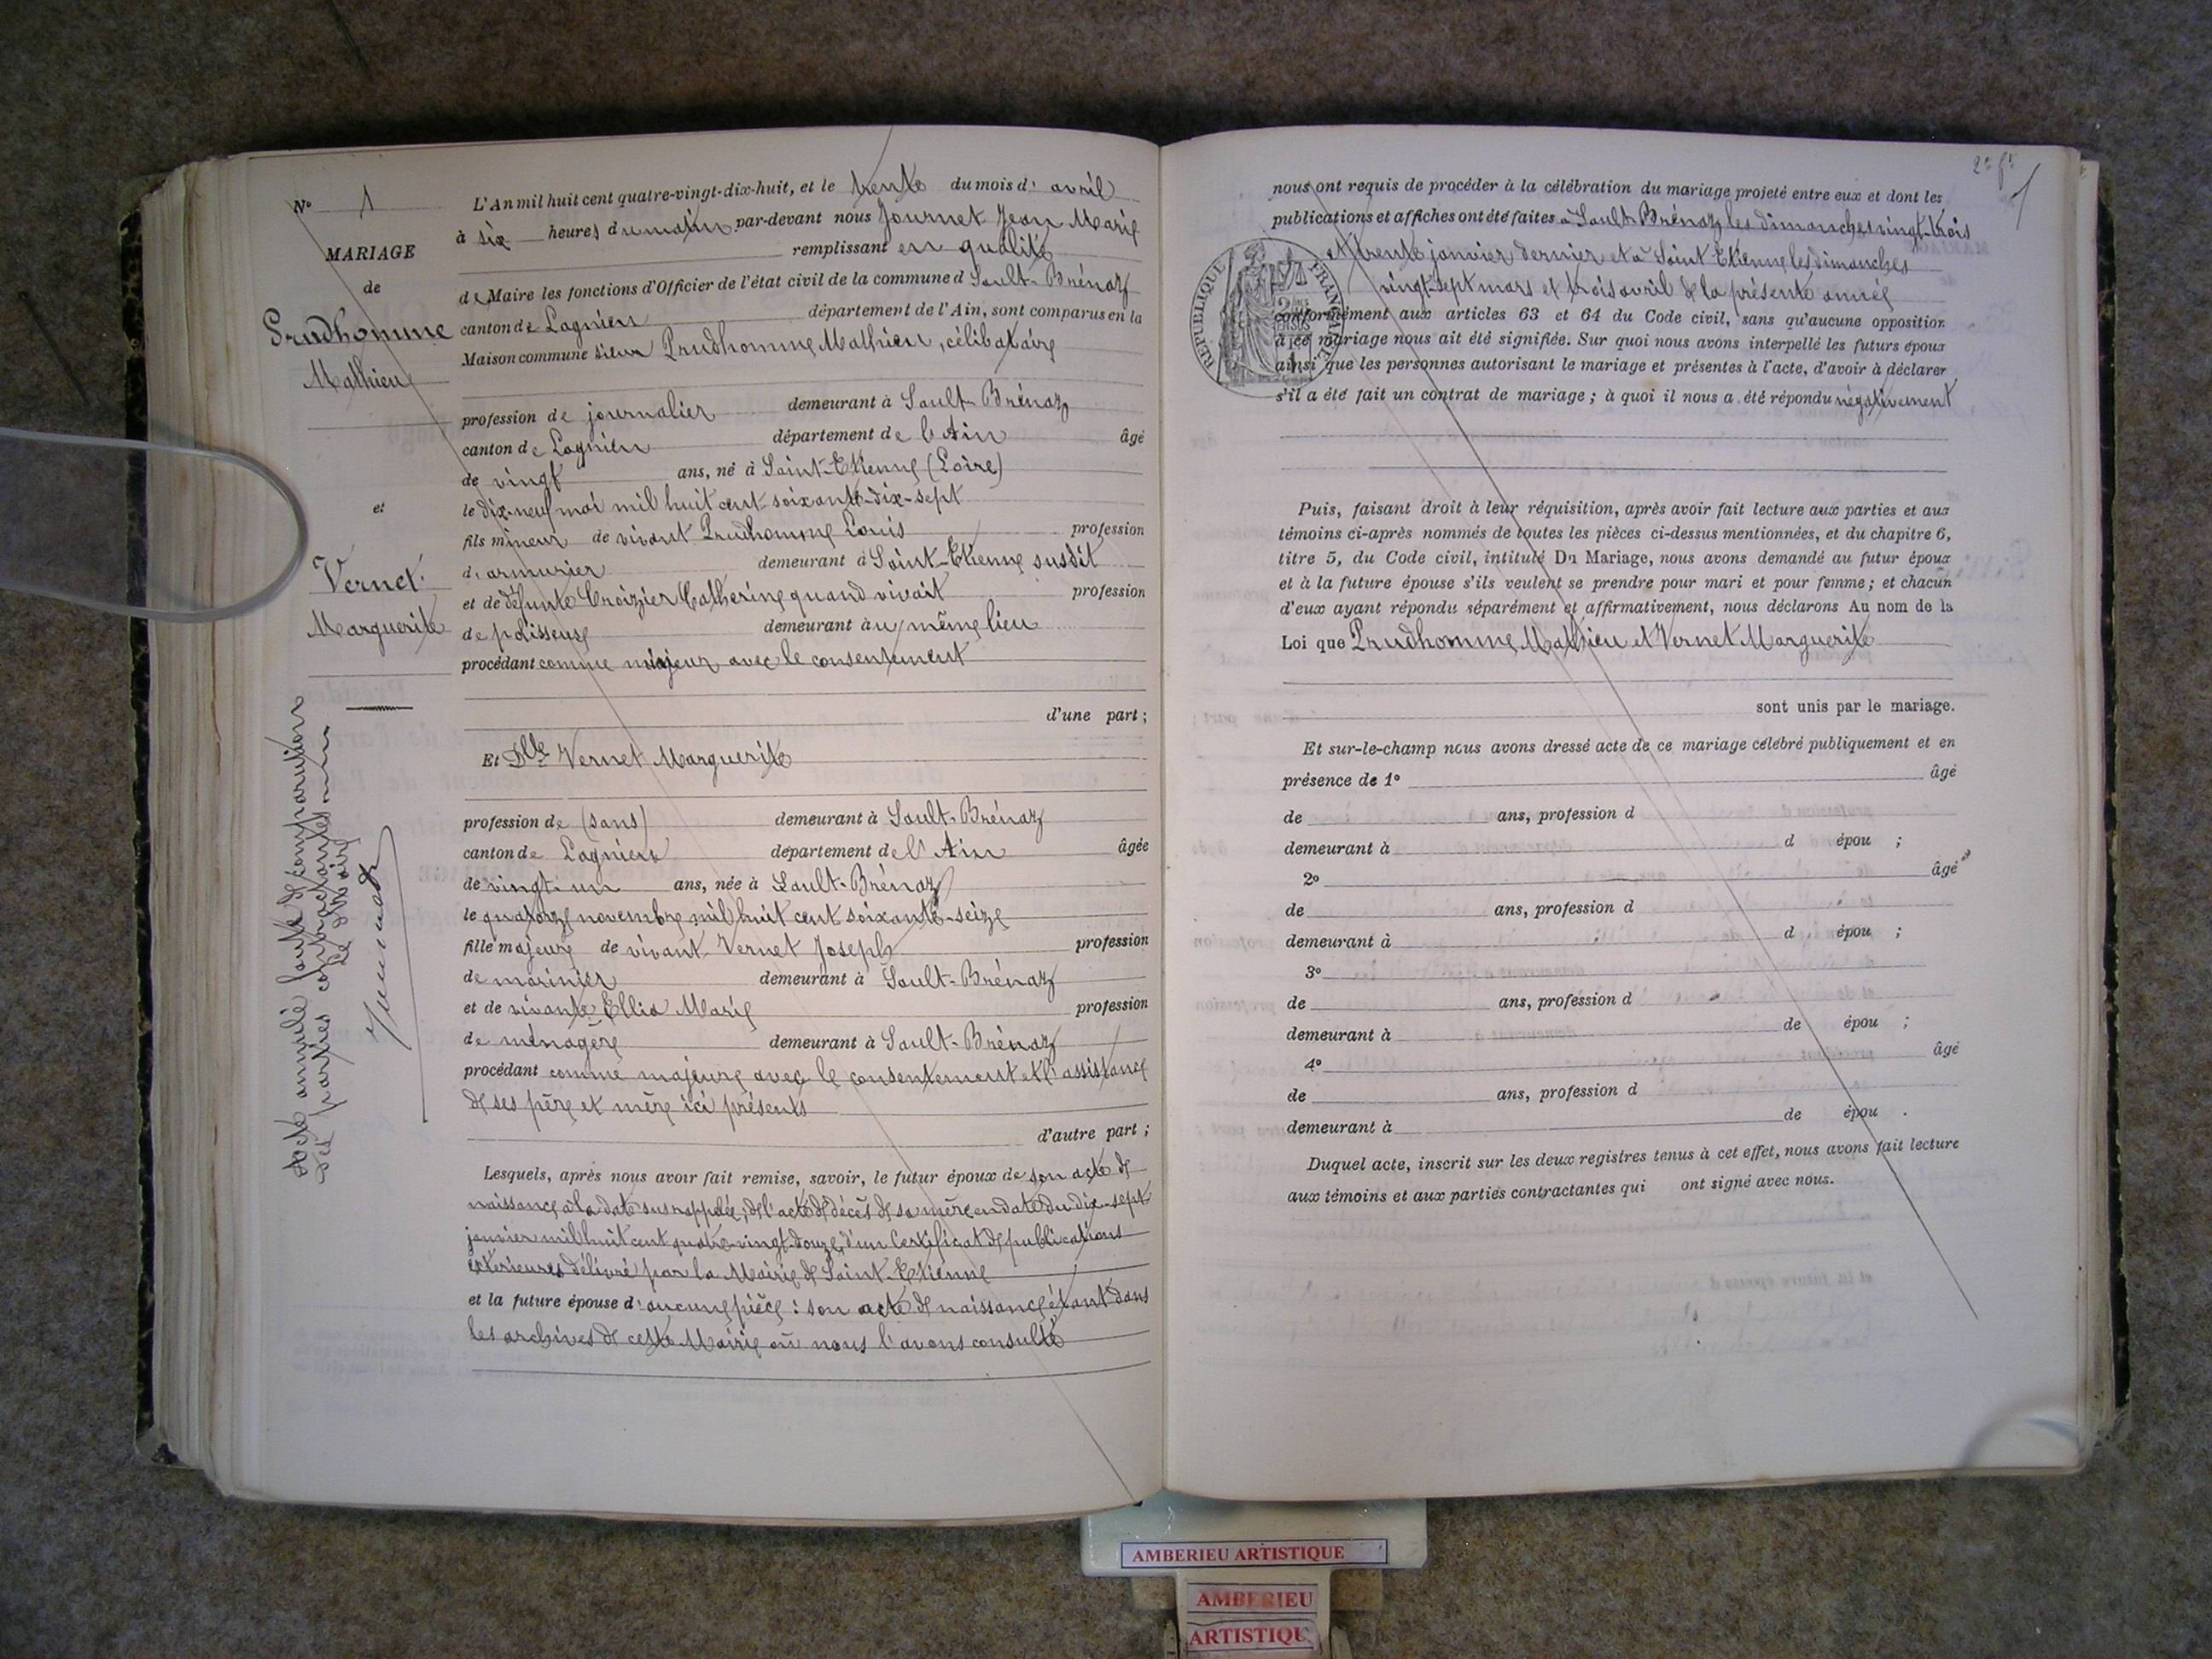 N° 1
MARIAGE
de
Prudhomme
Mathieu
et
Vernet
Marguerite
Acte annulé faute de comparution
des parties contractantes
Le Maire
Journet
L'An mil huit cent quatre-vingt-dix-huit, et le trente du mois d'avril
à six heures du matin par-devant nous Journet Jean Marie
remplissant en qualité
de Maire les fonctions d'Officier de l'état civil de la commune d Sault-Brénaz
canton de Lagnieu département de l'Ain, sont comparus en la
Maison commune sieur Prudhomme Mathieu, célibataire
profession de journalier demeurant à Sault-Brénaz
canton de Lagnieu département de l'Ain âgé
de vingt ans, né à Saint-Etienne (Loire)
le dix-neuf mai mil huit cent soixante-dix-sept
fils mineur de vivant Prudhomme Louis profession
d'armurier demeurant à Saint-Etienne susdit
et de défunte Croizier Catherine quand vivait profession
de polisseuse demeurant au même lieu
procédant comme mineur avec le consentement
d'une part ;
Et Dlle Vernet Marguerite
profession de (sans) demeurant à Sault-Brénaz
canton de Lagnieu département de l'Ain âgée
de vingt-un ans, née à Sault-Brénaz
le quatorze novembre mil huit cent soixante-seize
fille majeure de vivant Vernet Joseph profession
de marinier demeurant à Sault-Brénaz
et de vivante Ellia Marie profession
de ménagère demeurant à Sault-Brénaz
procédant comme majeure avec le consentement et l'assistance
de ses père et mère ici présents
d'autre part ;
Lesquels, après nous avoir fait remise, savoir, le futur époux de son acte de
naissance à la date susrappelée ; de l'acte de décès de sa mère en date du dix-sept
janvier mil huit cent quatre-vingt-douze, d'un certificat de publications
extérieures délivré par la Mairie de Saint-Etienne
et la future épouse d'aucune pièce : son acte de naissance étant dans
les archives de cette Mairie où nous l'avons consulté
2e ft
nous ont requis de procéder à la célébration du mariage projeté entre eux et dont les
publications et affiches ont été faites à Sault-Brénaz les dimanches vingt-trois
et trente janvier dernier et à Saint Etienne les dimanches
vingt-sept mars et trois avril de la présente année
REPUBLIQUE FRANÇAISE
conformément aux articles 63 et 64 du Code civil, sans qu'aucune opposition
à ce mariage nous ait été signifiée. Sur quoi nous avons interpellé les futurs époux
ainsi que les personnes autorisant le mariage et présentes à l'acte, d'avoir à déclarer
s'il a été fait un contrat de mariage ; à quoi il nous a été répondu négativement
Puis, faisant droit à leur réquisition, après avoir fait lecture aux parties et aux
témoins ci-après nommés de toutes les pièces ci-dessus mentionnées, et du chapitre 6,
titre 5, du Code civil, intitulé Du Mariage, nous avons demandé au futur époux
et à la future épouse s'ils veulent se prendre pour mari et pour femme ; et chacun
d'eux ayant répondu séparément et affirmativement, nous déclarons Au nom de la
Loi que Prudhomme Mathieu et Vernet Marguerite
sont unis par le mariage.
Et sur-le-champ nous avons dressé acte de ce mariage célébré publiquement et en
présence de 1° âgé
de ans, profession d
demeurant à d épou ;
2° âgé
de ans, profession d
demeurant à d épou ;
3°
de ans, profession d
demeurant à de épou ;
4° âgé
de ans, profession d
demeurant à de épou .
Duquel acte, inscrit sur les deux registres tenus à cet effet, nous avons fait lecture
aux témoins et aux parties contractantes qui ont signé avec nous.
AMBERIEU ARTISTIQUE
AMBERIEU
ARTISTIQU